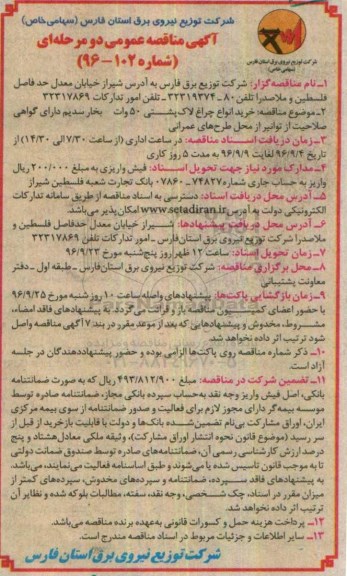 شرکت توزیع نیروی برق استان فارس (سهامی خاص)
آگهی مناقصه عمومی دو مرحله‌ای
(شماره ۱۰۲-۹۶)
شرکت توزیع نیروی برق استان فارس
(سهامی خاص)
۱ـ نام مناقصه‌گزار: شرکت توزیع برق فارس به آدرس شیراز خیابان معدل حد فاصل
فلسطین و ملاصدرا تلفن ۸۰ ـ ۳۲۳۱۹۳۷۴ ـ تلفن امور تدارکات ۳۲۳۱۷۸۶۹
۲ـ موضوع مناقصه: خرید انواع چراغ لاک‌پشتی ۵۰ وات بخار سدیم دارای گواهی
صلاحیت از توانیر از محل طرح‌های عمرانی
۳ـ زمان دریافت اسناد مناقصه: در ساعت اداری (از ساعت ۷/۳۰ الی ۱۴/۳۰) از
تاریخ ۹۶/۹/۴ لغایت ۹۶/۹/۹ به مدت ۵ روز کاری
۴ـ مدارک مورد نیاز جهت تحویل اسناد: فیش واریزی به مبلغ ۲۰۰/۰۰۰ ریال
واریز به حساب جاری شماره ۷۴۸۲۷ـ۰۷۸۶۰ بانک تجارت شعبه فلسطین شیراز
۵ـ آدرس محل دریافت اسناد: دسترسی به اسناد مناقصه از طریق سامانه تدارکات
الکترونیکی دولت به آدرس www.setadiran.ir امکان پذیر می‌باشد.
۶ـ آدرس محل دریافت پیشنهادها: شیراز خیابان معدل حدفاصل فلسطین و
ملاصدرا شرکت توزیع نیروی برق استان فارس ـ امور تدارکات تلفن ۳۲۳۱۷۸۶۹
۷ـ زمان تحویل اسناد: ساعت ۱۲ ظهر روز پنج‌شنبه مورخ ۹۶/۹/۲۳
۸ـ محل برگزاری مناقصه: شرکت توزیع نیروی برق استان فارس ـ طبقه اول ـ دفتر
معاونت پشتیبانی
۹ـ زمان بازگشایی پاکت‌ها: پیشنهادهای واصله ساعت ۱۰ روز شنبه مورخ ۹۶/۹/۲۵
با حضور اعضای کمیسیون مناقصه باز و قرائت می‌گردد. به پیشنهادهای فاقد امضاء،
مشروط، مخدوش و پیشنهادهایی که بعد از موعد مقرر در بند ۷ آگهی مناقصه واصل
شود ترتیب اثر داده نخواهد شد.
۱۰ـ ذکر شماره مناقصه روی پاکت‌ها الزامی بوده و حضور پیشنهاددهندگان در جلسه
آزاد است.
۱۱ـ تضمین شرکت در مناقصه: مبلغ ۴۹۳/۸۱۲/۹۰۰ ریال که به صورت ضمانتنامه
بانکی، اصل فیش واریز وجه نقد به‌حساب سپرده بانکی مجاز، ضمانتنامه صادره توسط
موسسه بیمه‌گر دارای مجوز لازم برای فعالیت و صدور ضمانتنامه از سوی بیمه مرکزی
ایران، اوراق مشارکت بی‌نام تضمین‌شده بانک‌ها و دولت با قابلیت بازخرید از قبل از
سر رسید (موضوع قانون نحوه انتشار اوراق مشارکت)، وثیقه ملکی معادل هشتاد و پنج
درصد ارزش کارشناسی رسمی آن، ضمانتنامه‌های صادره توسط صندوق ضمانت دولتی
تا به موجب قانون تاسیس شده یا می‌شوند و طبق اساسنامه فعالیت می‌نمایند، می‌باشد.
به پیشنهادهای فاقد سپرده، ضمانتنامه و سپرده‌های مخدوش، سپرده‌های کمتر از
میزان مقرر در اسناد، چک شخصی، وجه نقد، سفته، مطالبات بلوکه شده و نظایر آن
ترتیب اثر داده نخواهد شد.
۱۲ـ پرداخت هزینه حمل و کسورات قانونی به‌عهده برنده مناقصه می‌باشد.
۱۳ـ سایر اطلاعات و جزئیات مربوط در اسناد مناقصه مندرج است.
شرکت توزیع نیروی برق استان فارس